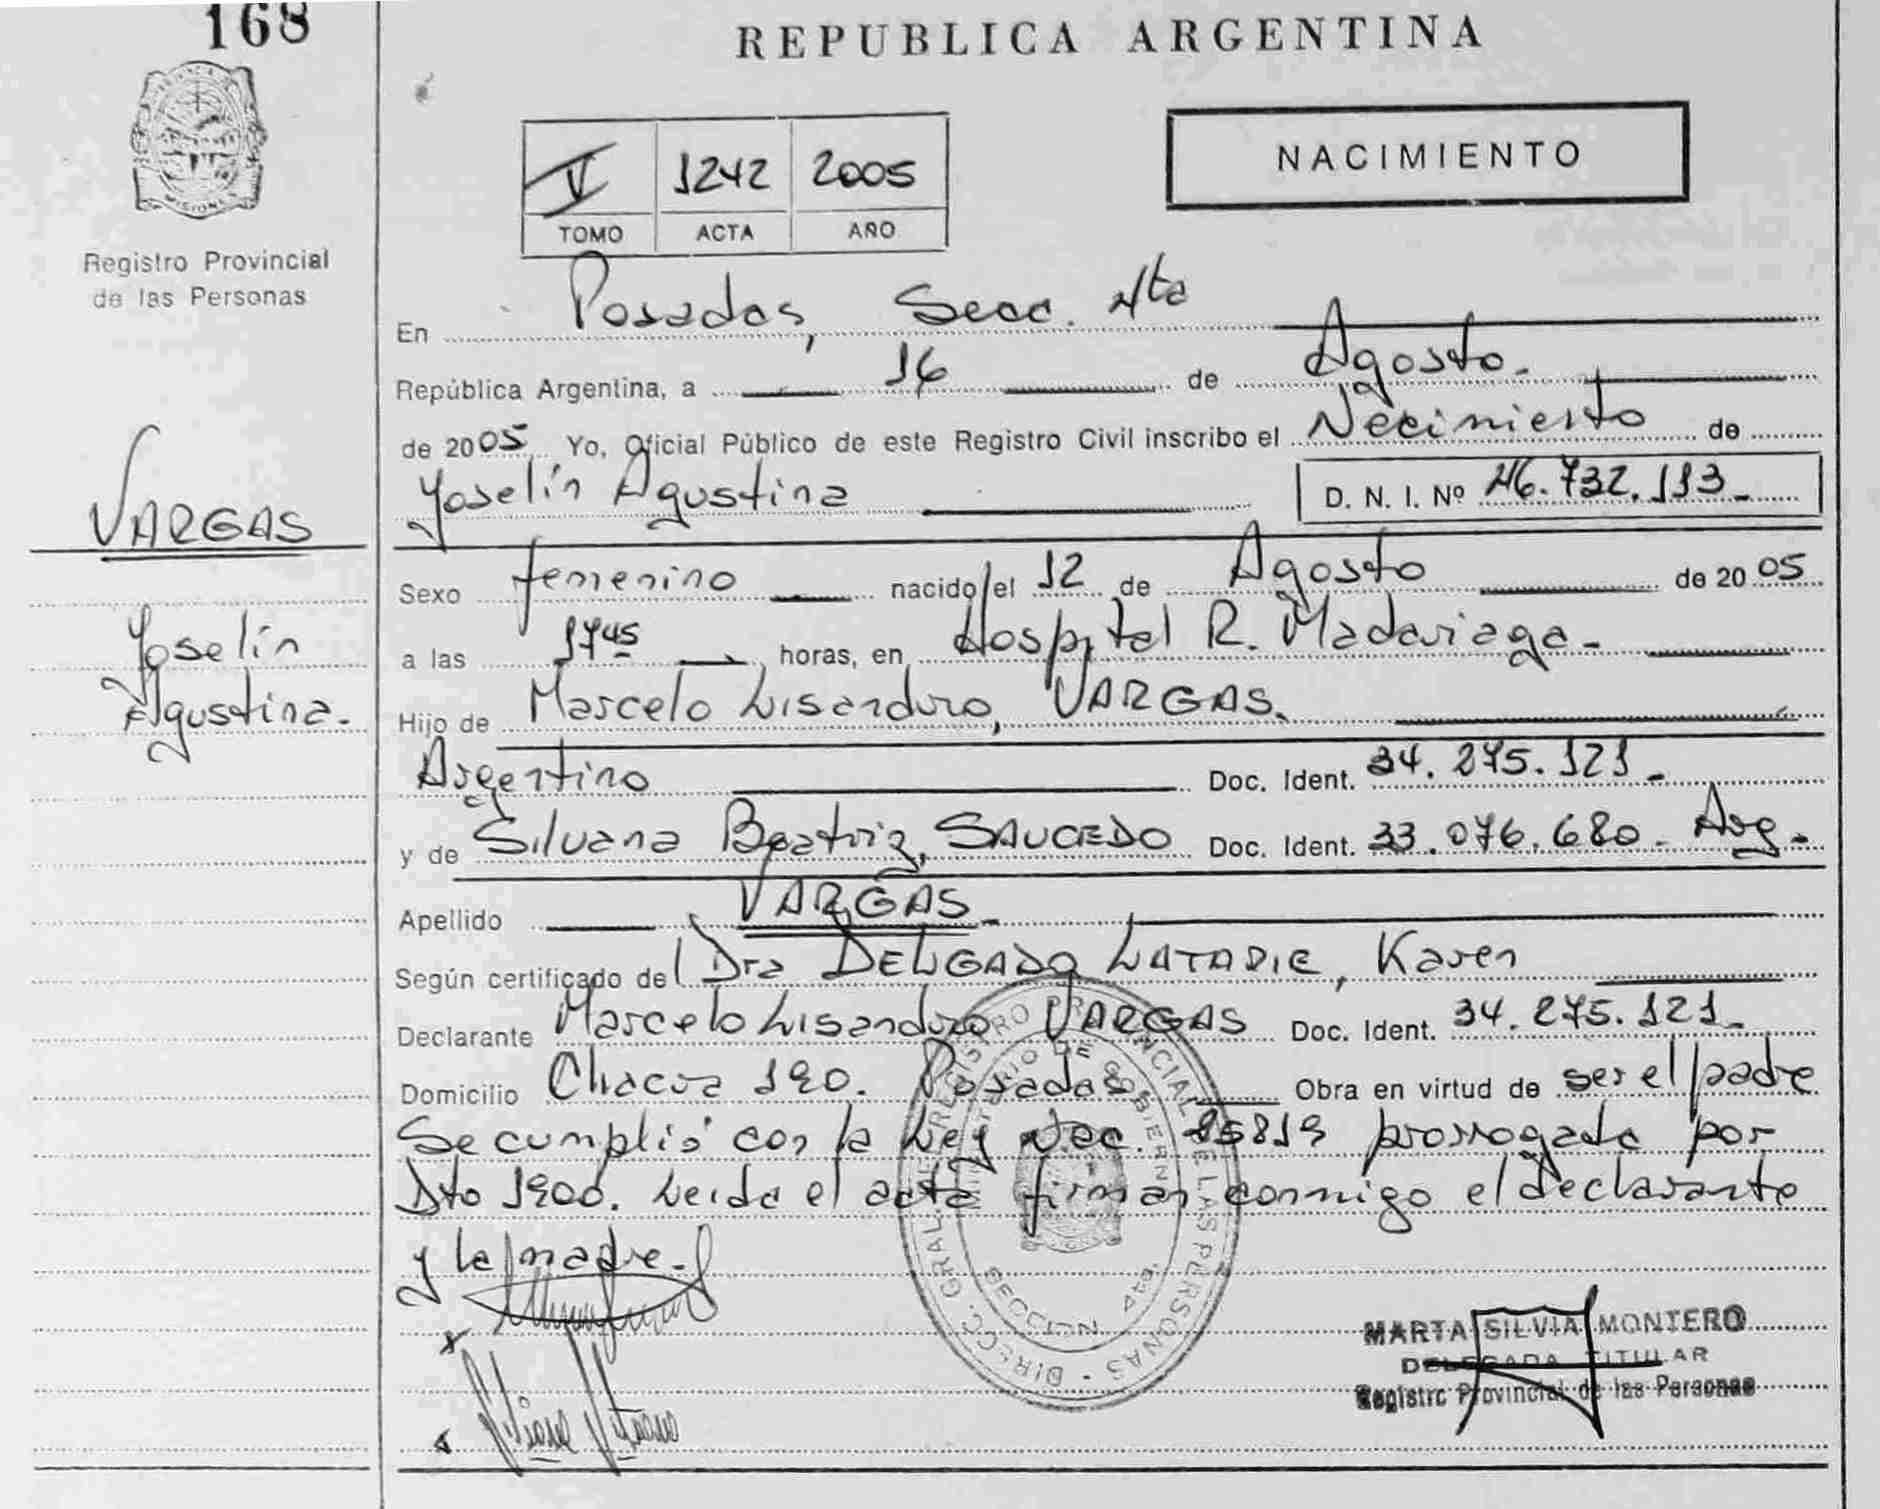 168
REPUBLICA ARGENTINA
MISIONES
Registro Provincial
de las Personas
V 1242 2005
TOMO ACTA AÑO
NACIMIENTO
En Posadas, Secc. 4ta
República Argentina, a 16 de Agosto.
de 2005 Yo, Oficial Público de este Registro Civil inscribo el Nacimiento de
Yoselín Agustina D. N. I. Nº 46.732.113_
VARGAS
Yoselín
Agustina.
Sexo femenino nacido/el 12 de Agosto de 2005
a las 1745 horas, en Hospital R. Madariaga-
Hijo de Marcelo Lisandro, VARGAS.
Argentino Doc. Ident. 34.275.121_
y de Silvana Beatriz, SAUCEDO Doc. Ident. 33.076.680. Arg.
Apellido VARGAS_
Según certificado de/ Dra DELGADO LATADIE, Karen
Declarante Marcelo Lisandro VARGAS Doc. Ident. 34.275.121_
Domicilio Chacra 190. Posadas Obra en virtud de ser el padre
Se cumplió con la Ley Nac. 25819 prorrogada por
Dto 1900. Leida el acta firman conmigo el declarante
y la madre.
DIRECC. GRAL. REGISTRO PROVINCIAL DE LAS PERSONAS
MINISTERIO DE GOBIERNO
SECCION 4ta.
MARTA SILVIA MONTERO
DELEGADA TITULAR
Registro Provincial de las Personas